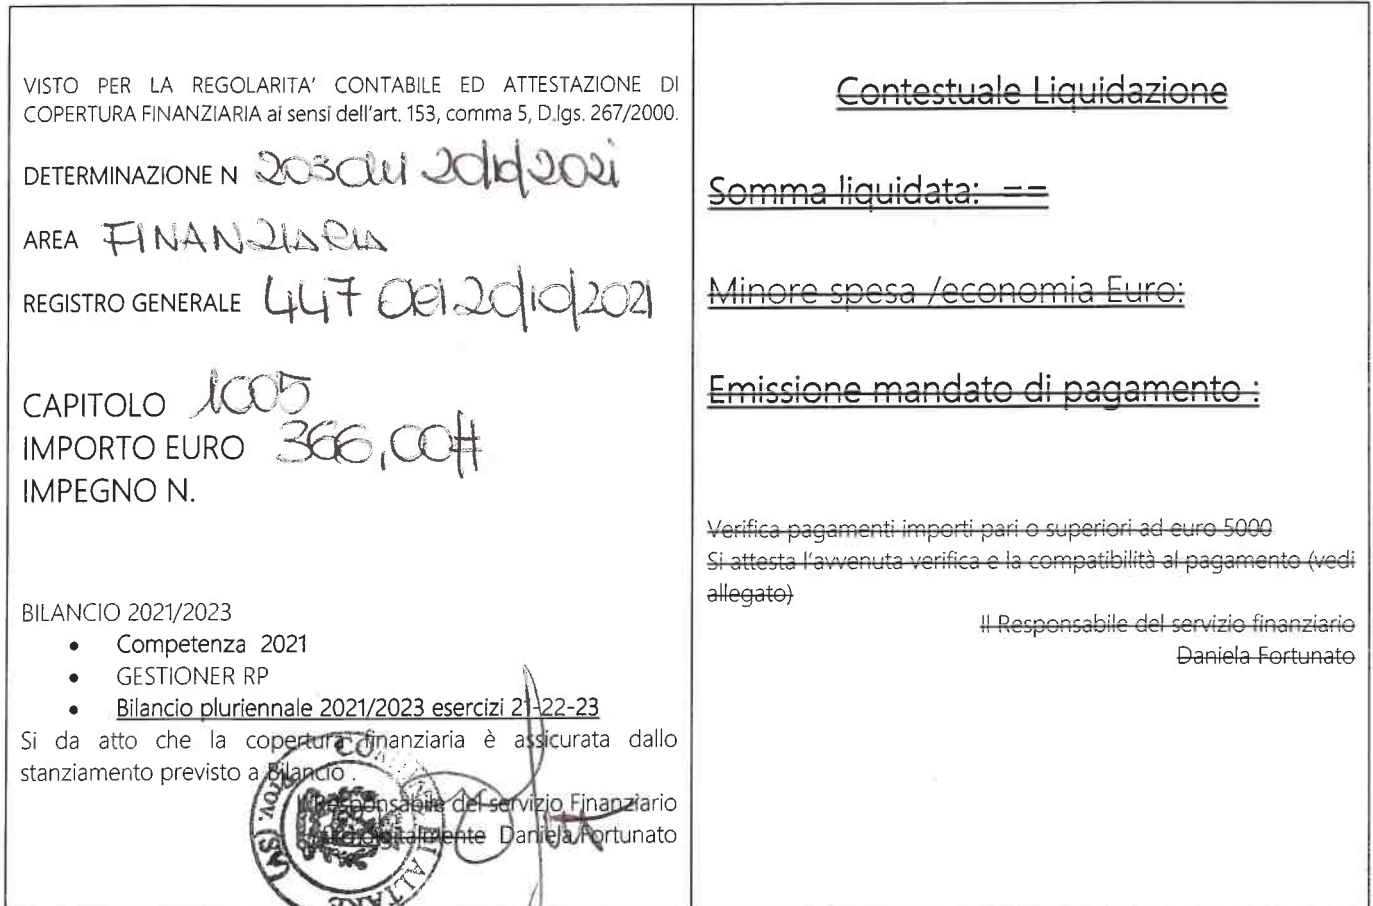 VISTO PER LA REGOLARITA’ CONTABILE ED ATTESTAZIONE DI
COPERTURA FINANZIARIA ai sensi dell’art. 153, comma 5, D.lgs. 267/2000.
DETERMINAZIONE N 203 del 20/10/2021
AREA FINANZIARIA
REGISTRO GENERALE 447 Del 20/10/2021
CAPITOLO 1005
IMPORTO EURO 366,00#
IMPEGNO N.
BILANCIO 2021/2023
• Competenza 2021
• GESTIONER RP
• Bilancio pluriennale 2021/2023 esercizi 21-22-23
Si da atto che la copertura finanziaria è assicurata dallo
stanziamento previsto a Bilancio .
Il Responsabile del servizio Finanziario
digitalmente Daniela Fortunato
COMUNE DI ALTARE
Prov. (SV)
Contestuale Liquidazione
Somma liquidata: ==
Minore spesa /economia Euro:
Emissione mandato di pagamento :
Verifica pagamenti importi pari o superiori ad euro 5000
Si attesta l’avvenuta verifica e la compatibilità al pagamento (vedi
allegato)
Il Responsabile del servizio finanziario
Daniela Fortunato